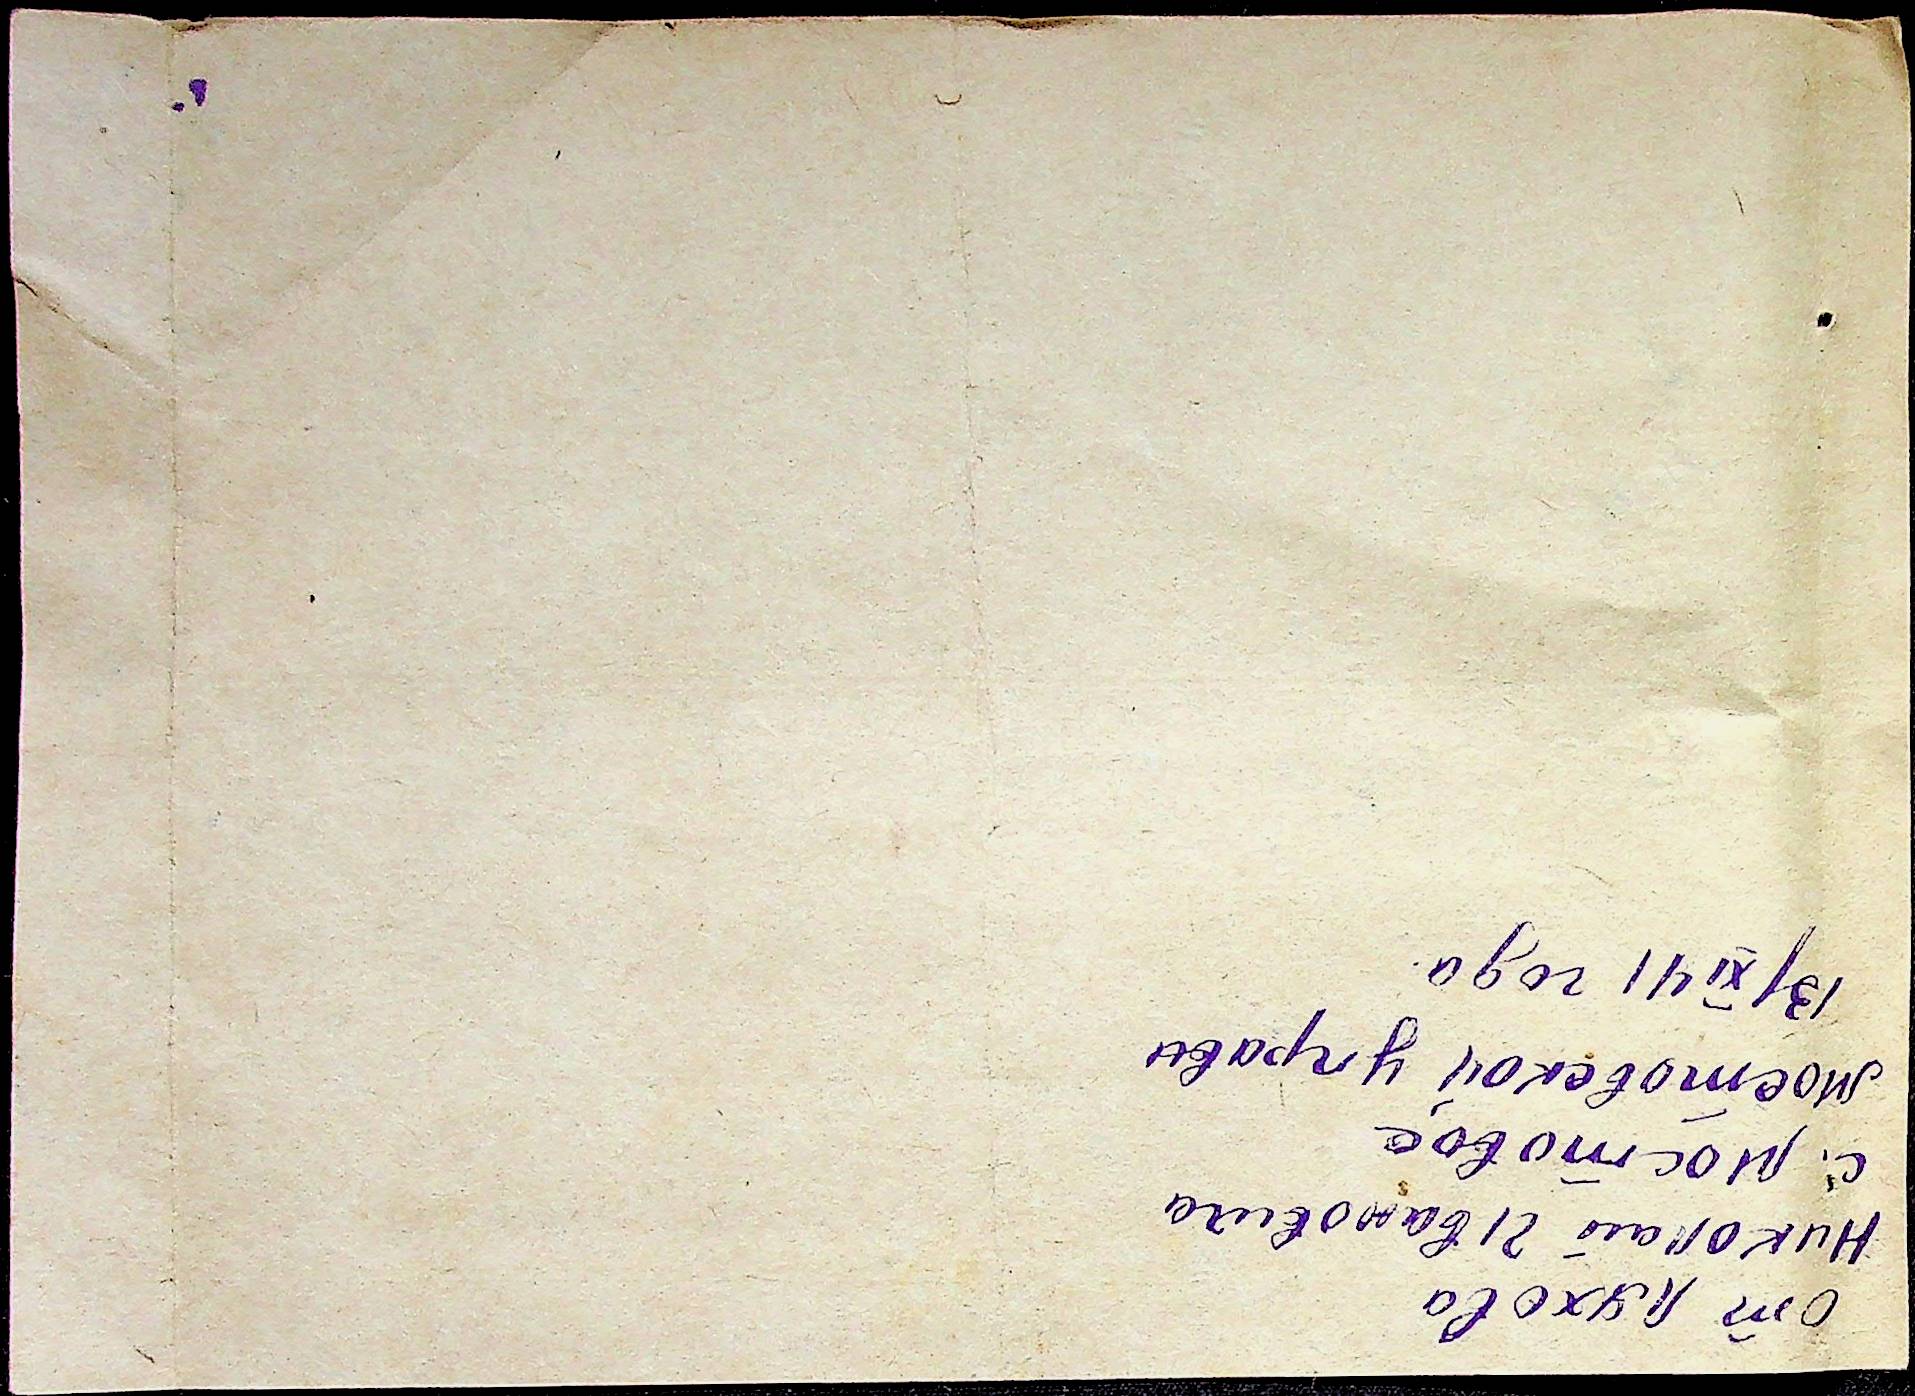 от Пухова
Николай Ивановича
с. Мостовое
Мостовской Управы
13/XI 41 года